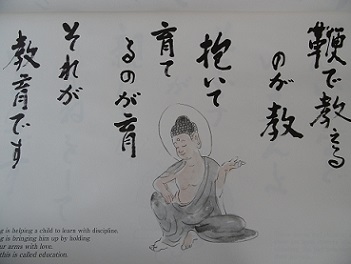 鞭で教える
のが教
抱いて
育て
るのが育
それが
教育です
is helping a child to learn with discipline.
is bringing him up by holding
arms with love.
this is called education.